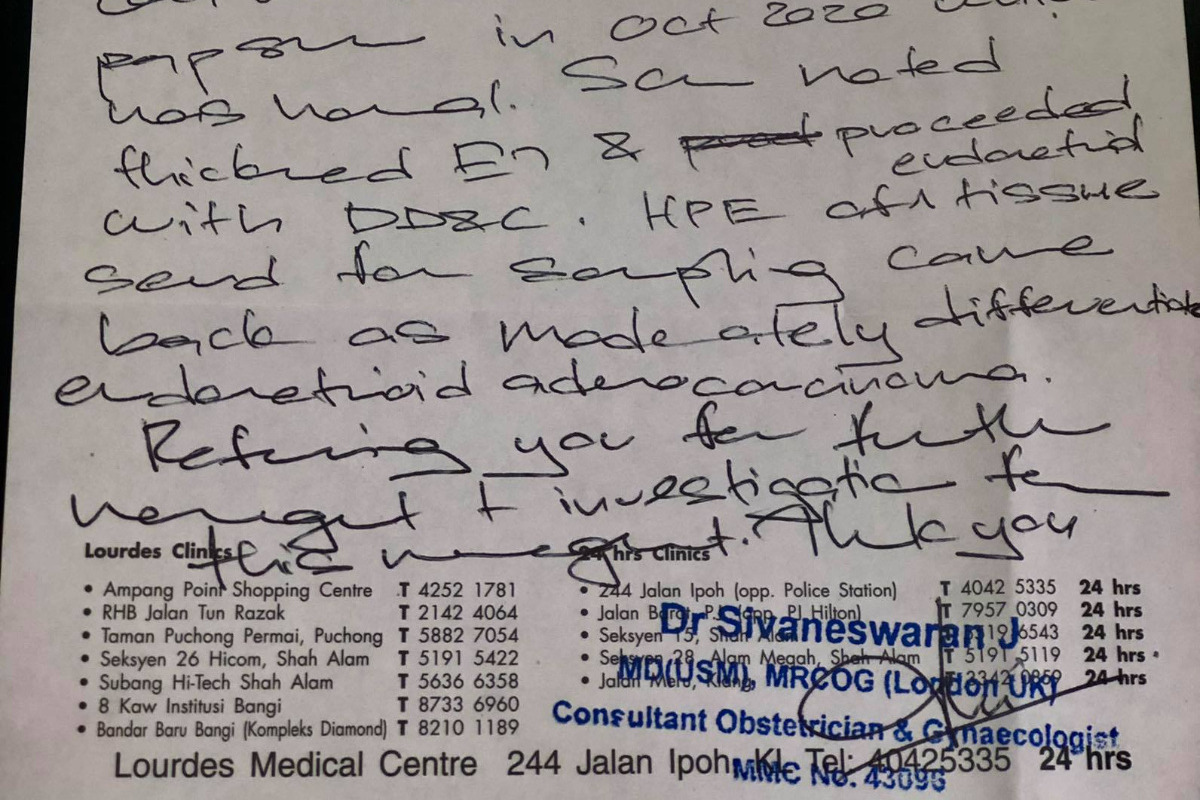 papsm in Oct 2020
was normal. Scan noted
thickened ET & proceeded
endometrial
with DD&C. HPE of tissue
send for sampling came
back as moderately differentiate
endometrioid adenocarcinoma.
Refering you for further
& investigation for
this Thank you
Lourdes Clinics
24 hrs Clinics
• Ampang Point Shopping Centre T 4252 1781
• RHB Jalan Tun Razak T 2142 4064
• Taman Puchong Permai, Puchong T 5882 7054
• Seksyen 26 Hicom, Shah Alam T 5191 5422
• Subang Hi-Tech Shah Alam T 5636 6358
• 8 Kaw Institusi Bangi T 8733 6960
• Bandar Baru Bangi (Kompleks Diamond) T 8210 1189
• 244 Jalan Ipoh (opp. Police Station) T 4042 5335 24 hrs
• Jalan Barat, PJ (opp. PJ Hilton) T 7957 0309 24 hrs
• Seksyen 15, Shah Alam 6543 24 hrs
• Seksyen 28, Alam Megah, Shah Alam T 5191 5119 24 hrs
• Jalan Meru, Klang 24 hrs
Dr Sivaneswaran J
MD(USM), MRCOG (London UK)
Consultant Obstetrician & Gynaecologist
MMC No. 43096
Lourdes Medical Centre 244 Jalan Ipoh, KL Tel: 40425335 24 hrs